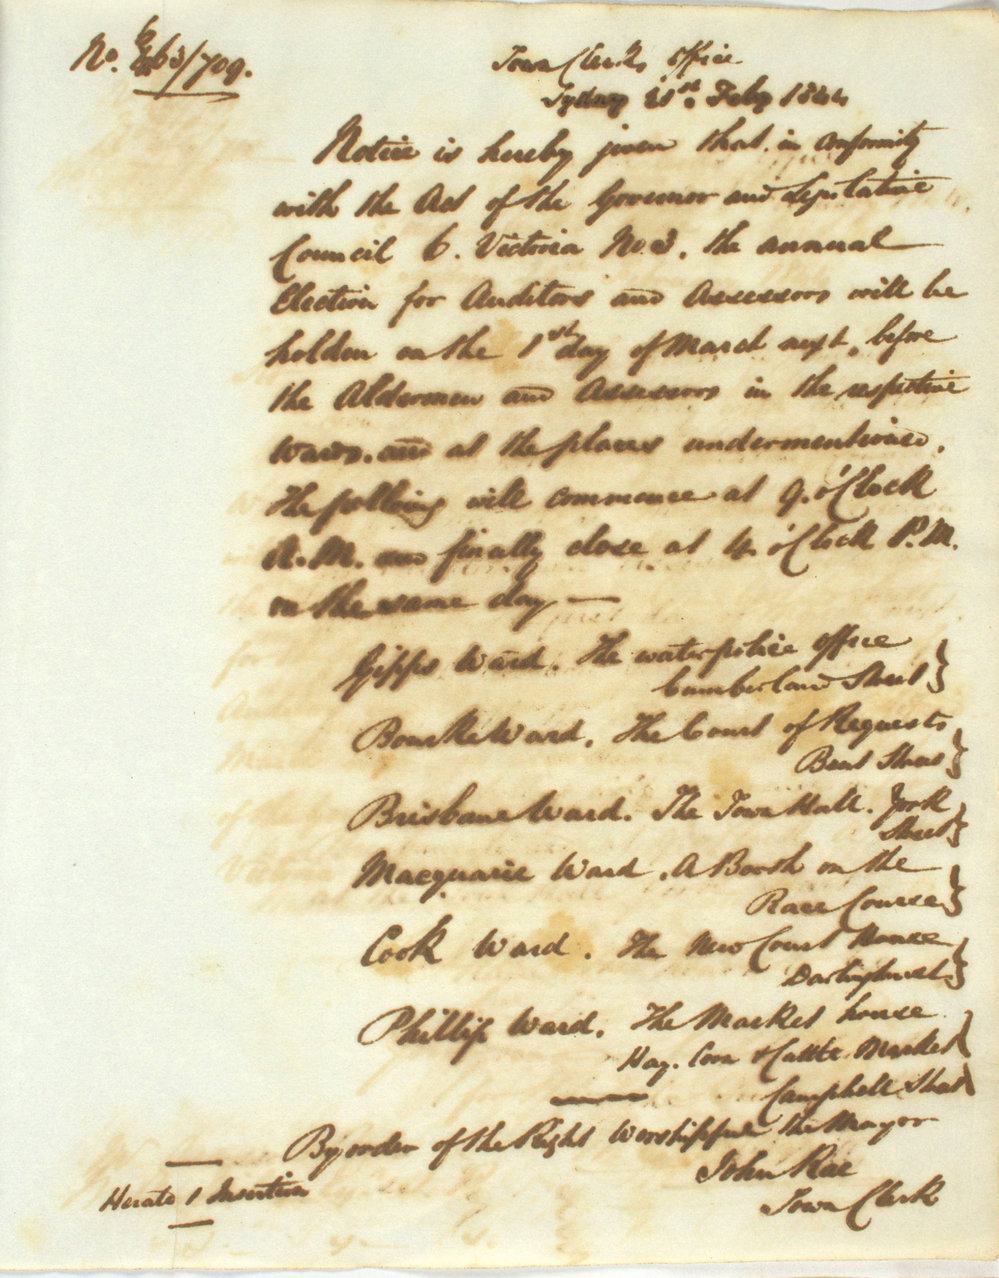 No. 63/709.
Town Clerk's Office
Sydney 21st. Feby 1844
Notice is hereby given that in conformity
with the Act of the Governor and Legislative
Council 6. Victoria No 3, the annual
Election for Auditors and Assessors will be
holden on the 1st day of March next, before
the Aldermen and Assessors in the respective
Wards, and at the places undermentioned.
The polling will commence at 9. o'Clock
A.M. and finally close at 4. o'Clock P.M.
on the same day —
Gipps Ward. The water police office
Cumberland Street
Bourke Ward. The Court of Requests
Bent Street
Brisbane Ward. The Town Hall. York
Street
Macquarie Ward. A Booth on the
Race Course
Cook Ward. The New Court House
Darlinghurst
Phillip Ward. The Market house
Hay. Corn & Cattle Market
Campbell Street
By order of the Right Worshipful the Mayor
John Rae
Town Clerk
Herald 1 Insertion